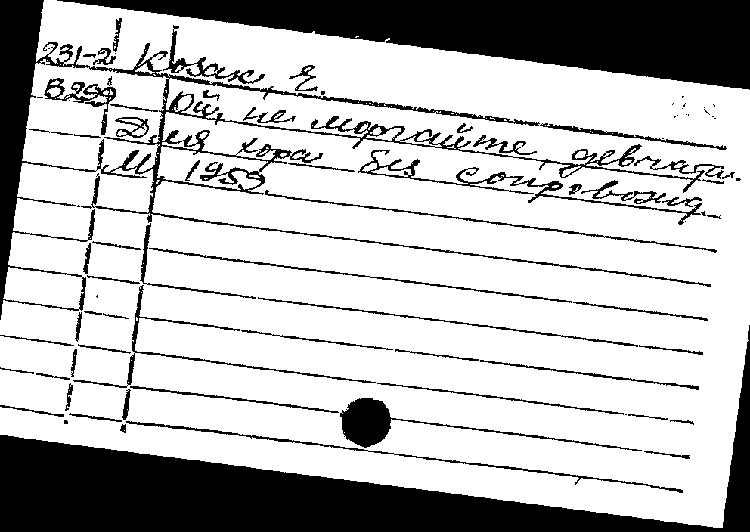 231-2 Козак, Е.
В299 Ой, не моргайте, девчата.
Для хора без сопровожд.
М, 1959.